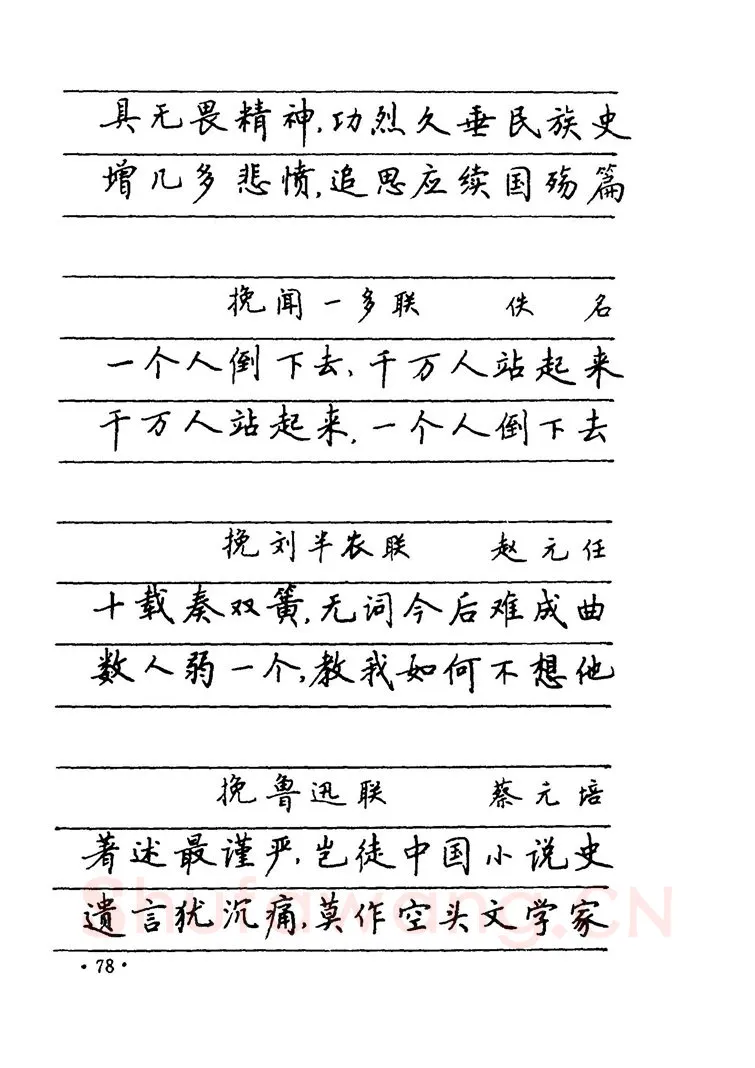 具无畏精神,功烈久垂民族史
增几多悲愤,追思应续国殇篇
挽闻一多联 佚名
一个人倒下去,千万人站起来
千万人站起来,一个人倒下去
挽刘半农联 赵元任
十载奏双簧,无词今后难成曲
数人弱一个,教我如何不想他
挽鲁迅联 蔡元培
著述最谨严,岂徒中国小说史
遗言犹沉痛,莫作空头文学家
Shufawang.CN
·78·